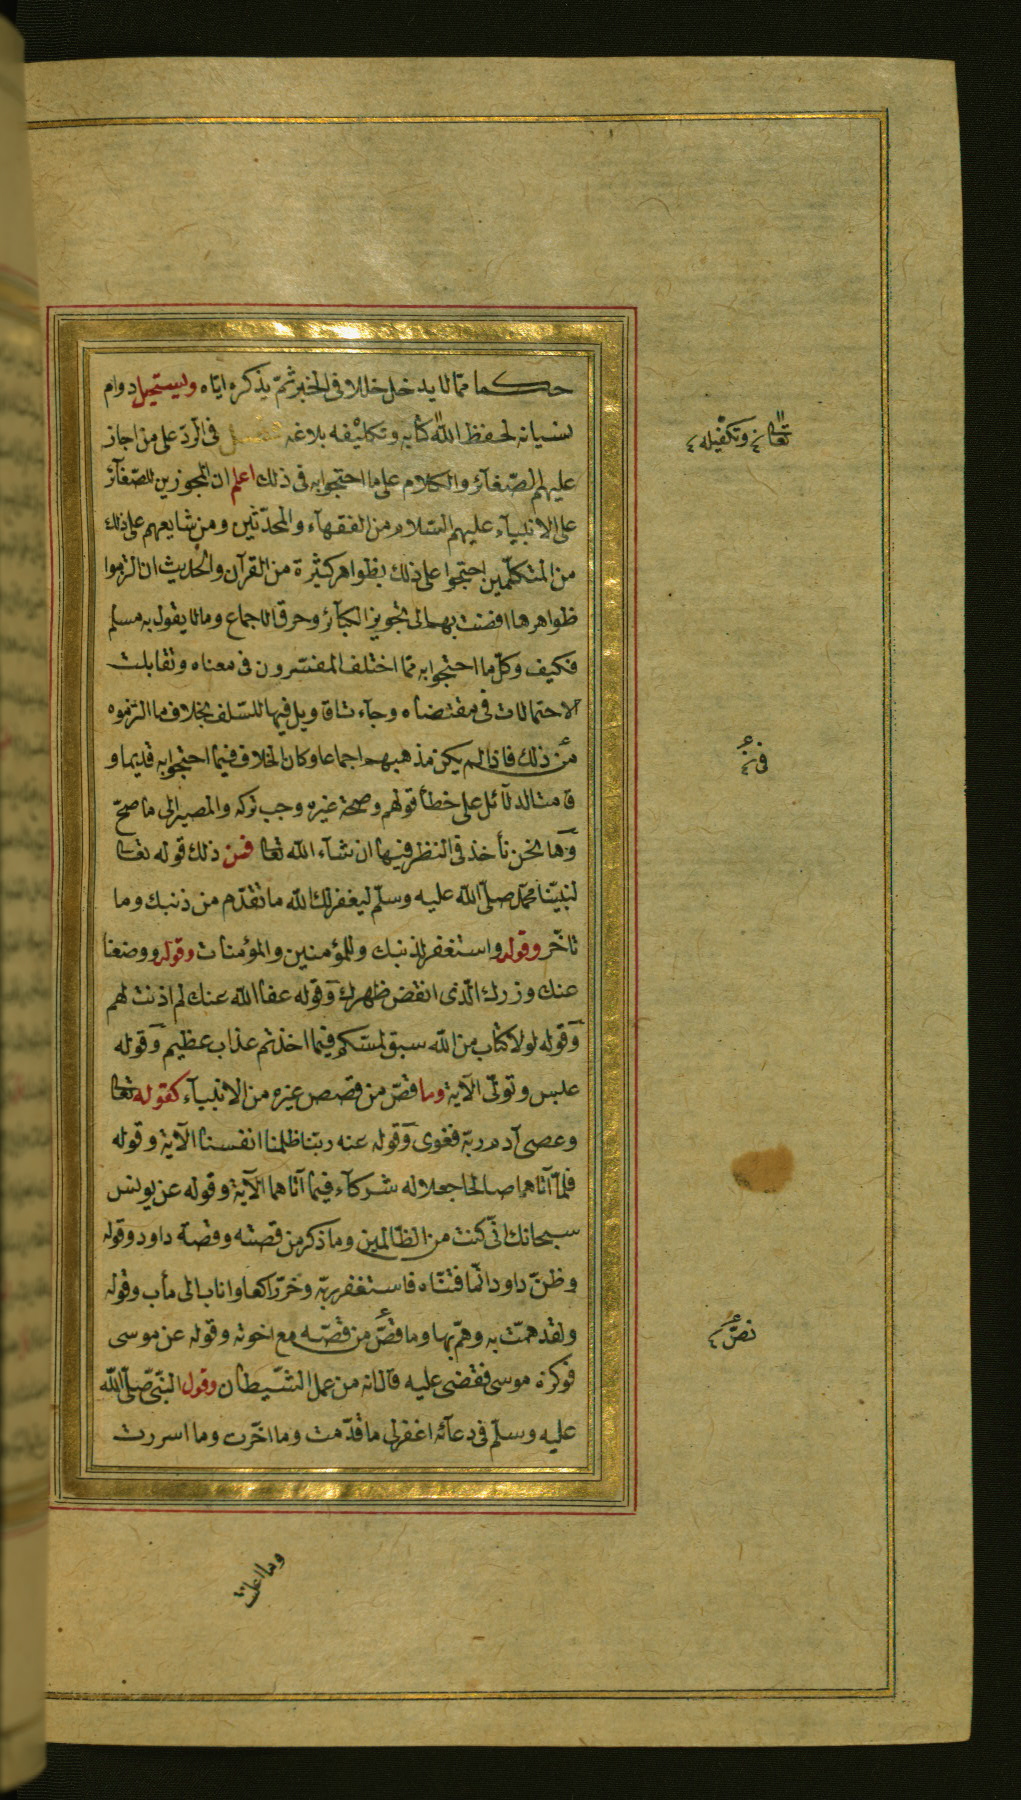 حكما مما لا يدخل خللا في الخبر ثمّ يذكره ايّاه ويستحيل دوام
نسيانه لحفظ اللّٰه كتابه وتكليفه بلاغه فصل في الرّد على من اجاز
عليهم الصّغآئر والكلام على ما احتجوا به في ذلك اعلم ان المجوزين للصّغآئر
على الانبيآء عليهم السّلام من الفقهآء والمحدّثين ومن شايعهم على ذلك
من المتكلّمين احتجّوا على ذلك بظواهر كثيرة من القرآن والحديث ان التزموا
ظواهرها افضت بهم الى تجويز الكبآئر وخرق الاجماع وما لا يقول به مسلم
فكيف وكلّ ما احتجوا به ممّا اختلف المفسّرون في معناه وتقابلت
الاحتمالات في مقتضاه وجآءت اقاويل فيها للسّلف بخلاف ما التزموه
من ذلك فاذا لم يكن مذهبهم اجماعا وكان الخلاف فيما احتجوا به قديما و
قامت الدلآئل على خطأ قولهم وصحة غيره وجب تركه والمصير الى ما صحّ
وها نحن نأخذ في النظر فيها ان شآء اللّه تعا فمن ذلك قوله تعا
لنبيّنا محمّد صلّى اللّه عليه وسلّم ليغفر لك اللّه ما تقدّم من ذنبك وما
تاخّر وقوله واستغفر لذنبك وللمؤمنين والمؤمنات وقوله ووضعنا
عنك وزرك الّذي انقض ظهرك وقوله عفا اللّه عنك لم اذنت لهم
وقوله لولا كتاب من اللّه سبق لمسّكم فيما اخذتم عذاب عظيم وقوله
عبس وتولّى الآية وما قصّ من قصص غيره من الانبيآء كقوله تعا
وعصى آدم ربّه فغوى وقوله عنه ربّنا ظلمنا انفسنا الآية وقوله
فلمّا آتاهما صالحا جعلا له شركآء فيما آتاهما الآية وقوله عن يونس
سبحانك انّي كنت من الظّالمين وما ذكر من قصّته وقصّة داود وقوله
وظنّ داود انّما فتنّاه فاستغفر ربّه وخرّ راكعا واناب الى مأب وقوله
ولقد همّت به وهمّ بها وما قصّ من قصّته مع اخوته وقوله عن موسى
فوكزه موسى فقضى عليه قال هذا من عمل الشّيطان وقول النّبيّ صلّى اللّه
عليه وسلّم في دعآئه اغفر لي ما قدّمت وما اخّرت وما اسررت
وما اعلنت
تعا وتكفيله
في
نصّ